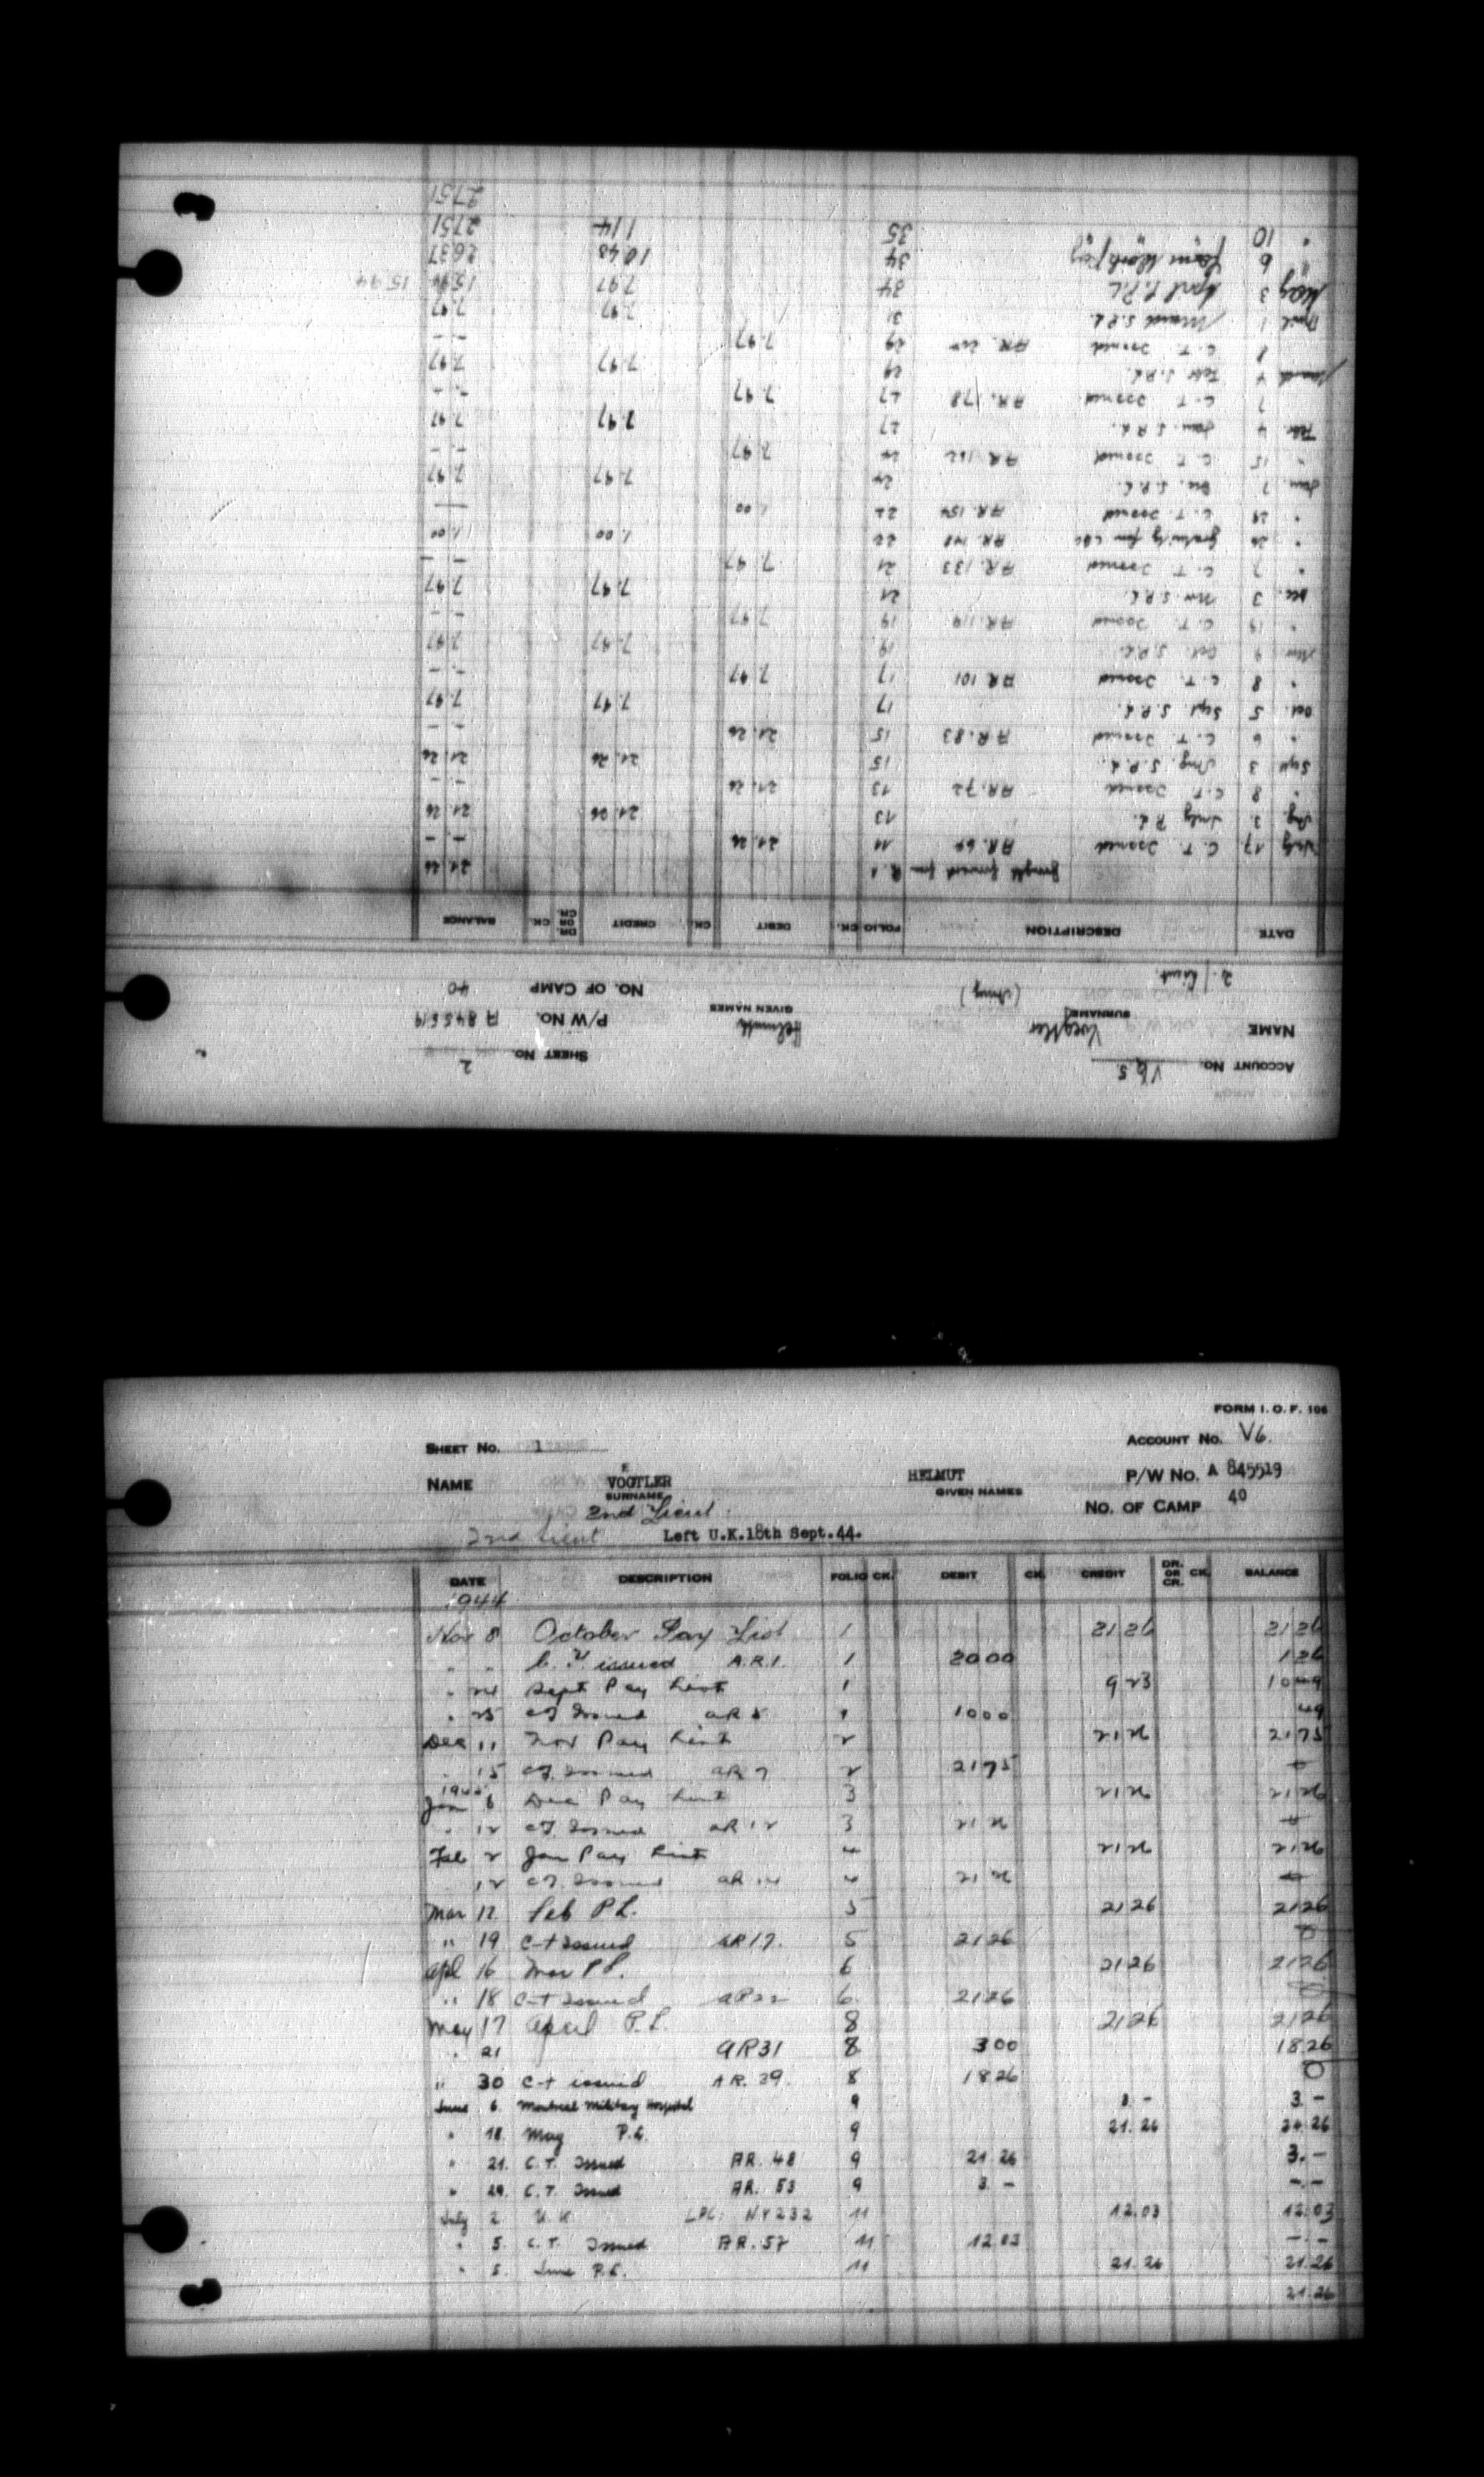 SHEET No. 2
ACCOUNT No. V6. 5
NAME Voegtler Helmuth P/W No. A 845519
SURNAME GIVEN NAMES
2./Lieut. (Army) NO. OF CAMP 40
DATE DESCRIPTION FOLIO CK. DEBIT CK. CREDIT DR. OR CR. CK. BALANCE
Brought forward from R. 1 21.26
July 17 C.T. Issued AR. 64 11 21.26 -.-
Aug. 3 July P.L. 13 21.26 21.26
" 8 C.T. Issued AR. 72 13 21.26 -.-
Sept 3 Aug. S.P.L. 15 21.26 21.26
" 6 C.T. Issued AR. 83 15 21.26 -.-
Oct. 5 Sept. S.P.L. 17 7.97 7.97
" 8 C.T. Issued AR. 101 17 7.97 -.-
Nov. 9 Oct. S.P.L. 19 7.97 7.97
" 19 C.T. Issued AR. 119 19 7.97 -.-
Dec. 3 Nov. S.P.L. 21 7.97 7.97
" 7 C.T. Issued AR. 133 21 7.97 -
" 26 Gratuity from AR. 148 22 1.00 1.00
" 29 C.T. Issued AR. 154 22 1.00 —
Jan. 7 Dec. S.P.L. 24 7.97 7.97
" 15 C.T. Issued AR. 162 24 7.97 -.-
Febr. 4 Jan. S.P.L. 27 7.97 7.97
7 C.T. Issued AR. 178 27 7.97 -.-
March 4 Febr. S.P.L. 29 7.97 7.97
8 C.T. Issued AR. 29 7.97 -.-
April 1 March S.P.L. 31 7.97 7.97
May 3 April S.P.L. 34 7.97 15.94 15.94
" 6 Farm Work Pay 34 10.43 26.37
" 10 " " " 35 1.14 27.51
27.51
FORM I. O. F. 106
SHEET No. 1 ACCOUNT No. V6.
E
NAME VOGTLER HELMUT P/W No. A 845519
SURNAME GIVEN NAMES
2nd Lieut. NO. OF CAMP 40
2nd Lieut Left U.K.18th Sept.44.
DATE DESCRIPTION FOLIO CK. DEBIT CK. CREDIT DR. OR CR. CK. BALANCE
1944
Nov 8 October Pay List 1 21 26 21 26
" " C.T. issued A.R.1. 1 20 00 1 26
" 24 Sept Pay List 1 9 23 10 49
" 25 CT Issued AR 5 1 10 00 49
Dec 11 Nov Pay List 2 21 26 21 75
" 15 CT. Issued AR 7 2 21 75 0
1945
Jan 6 Dec Pay List 3 21 26 21 26
" 12 CT. Issued AR 12 3 21 26 0
Feb 2 Jan Pay List 4 21 26 21 26
12 CT. Issued AR 14 4 21 26 0
Mar 12 Feb P L. 5 21 26 21 26
" 19 C-t Issued AR 17. 5 21 26 0
Apl 16 Mar P L. 6 21 26 21 26
" 18 C-t Issued AR 22 6. 21 26 0
May 17 April P.L. 8 21 26 21 26
" 21 AR31 8 3 00 18.26
" 30 C-t issued AR. 39. 8 18 26 0
June 6. Montreal Military Hospital 9 3.- 3.-
" 18. May P.L. 9 21.26 24.26
" 21. C.T. Issued AR. 48 9 21.26 3.-
" 29. C.T. Issued AR. 53 9 3.- -.-
July 2 U.K. LPC: NY232 11 12.03 12.03
" 5. C.T. Issued AR. 57 11 12.03 -.-
" 5. June P.L. 11 21.26 21.26
21.26